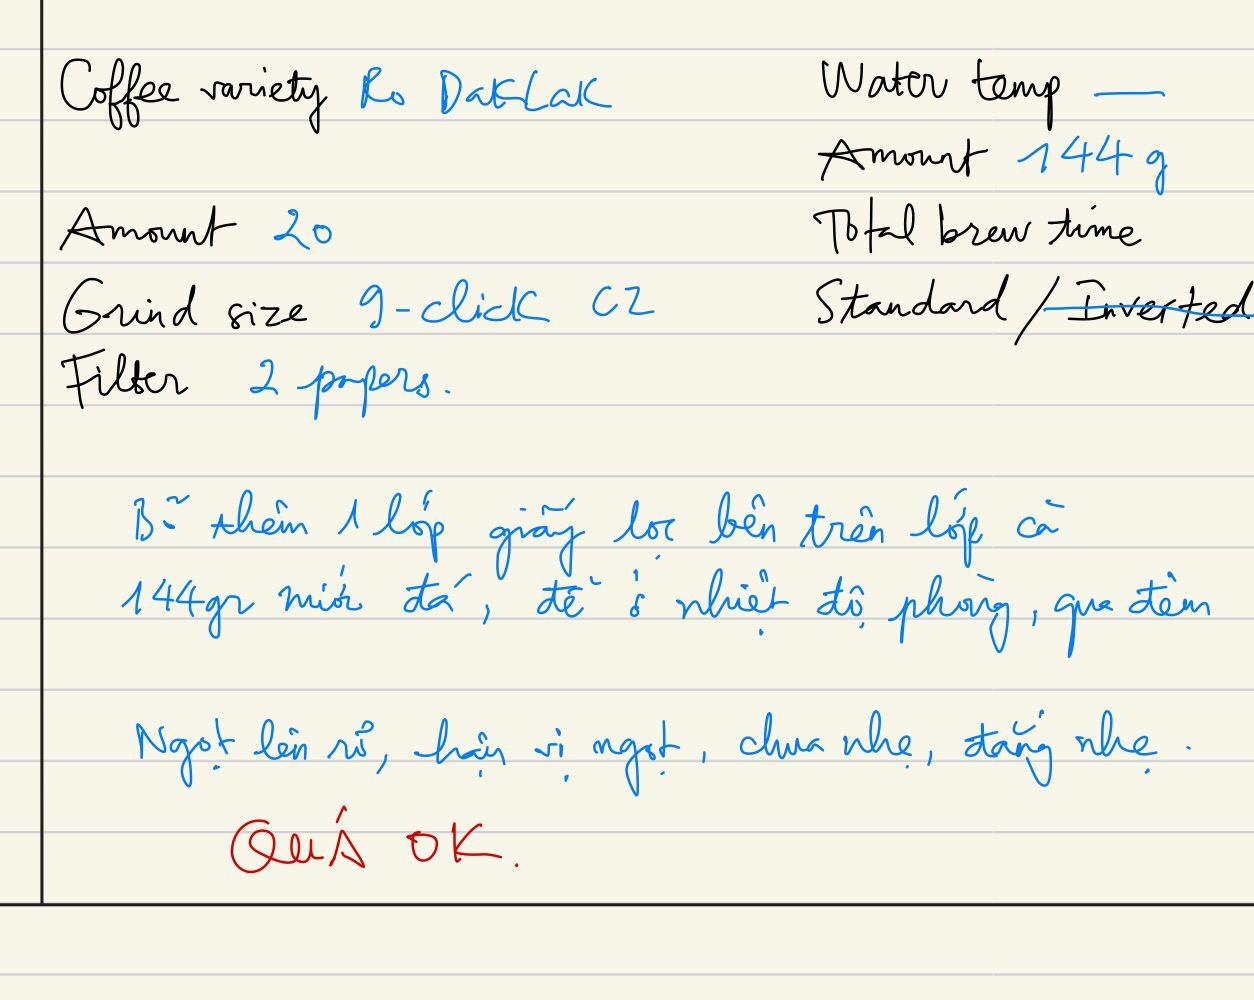 Coffee variety Ro DakLak
Water temp —
Amount 144 g
Amount 20
Total brew time
Grind size 9-click C2
Standard / Inverted
Filter 2 papers.
Bỏ thêm 1 lớp giấy lọc bên trên lớp cà
144gr nước đá, để ở nhiệt độ phòng, qua đêm
Ngọt lên rõ, hậu vị ngọt, chua nhẹ, đắng nhẹ.
QUÁ OK.